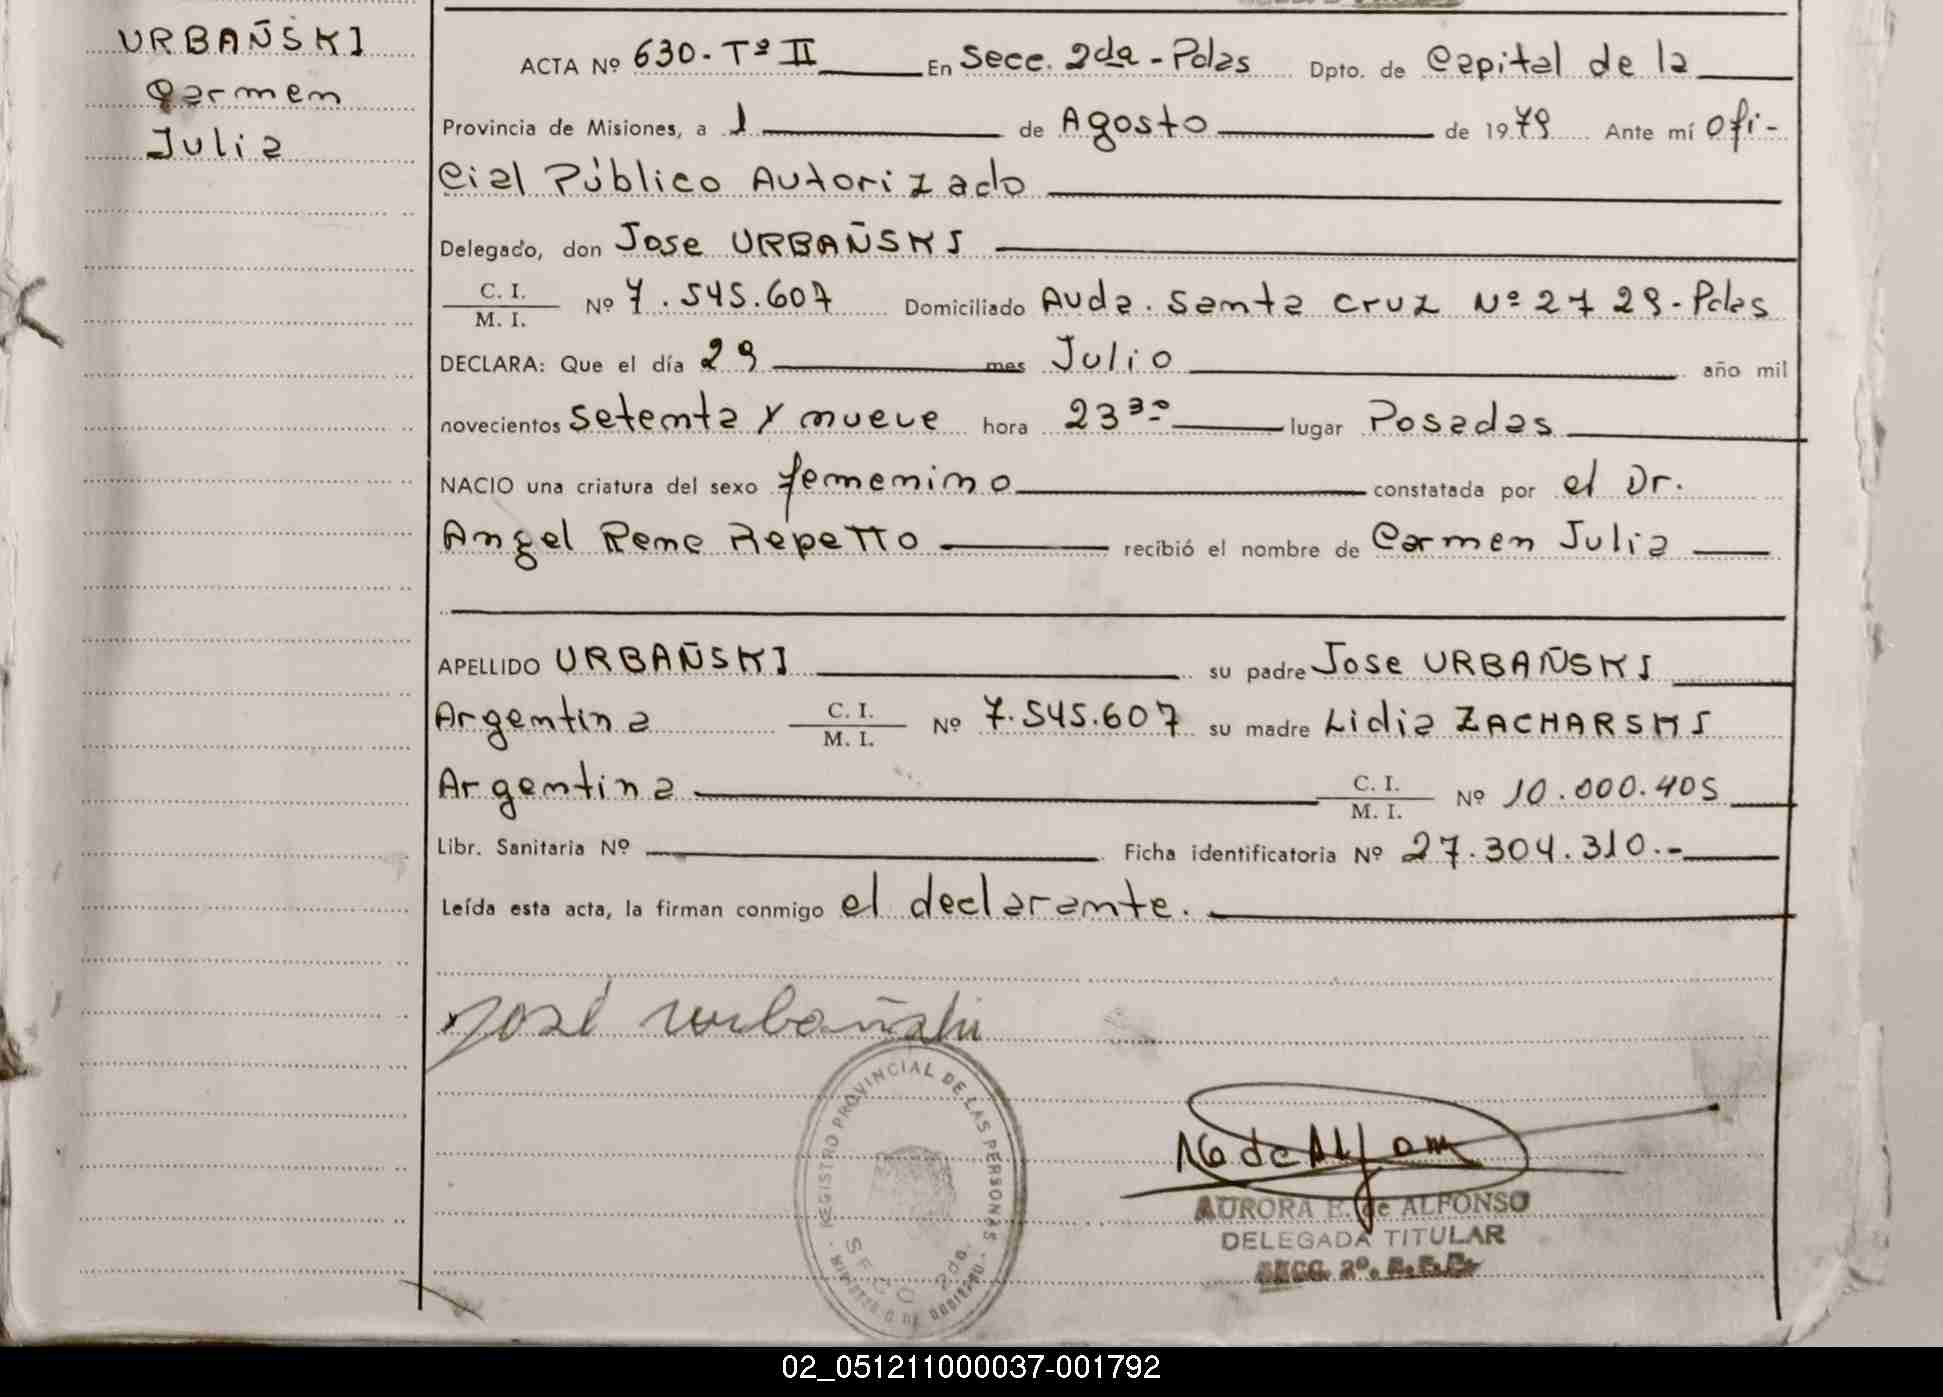 URBAÑSKI
Carmen
Julia
ACTA Nº 630-Tº II En Secc. 2da-Pdas Dpto. de Capital de la
Provincia de Misiones, a 1 de Agosto de 1979 Ante mí Ofi-
cial Público Autorizado
Delegado, don Jose URBAÑSKI
C. I.
M. I. Nº 7.545.607 Domiciliado Avda. Santa Cruz Nº 2729-Pdas
DECLARA: Que el día 29 mes Julio año mil
novecientos setenta y nueve hora 23 30 lugar Posadas
NACIO una criatura del sexo femenino constatada por el Dr.
Angel Rene Repetto recibió el nombre de Carmen Julia
APELLIDO URBAÑSKI su padre Jose URBAÑSKI
Argentina C. I. M. I. Nº 7.545.607 su madre Lidia ZACHARSKI
Argentina C. I. M. I. Nº 10.000.405
Libr. Sanitaria Nº Ficha identificatoria Nº 27.304.310.-
Leída esta acta, la firman conmigo el declarante.
José Urbañski
REGISTRO PROVINCIAL DE LAS PERSONAS
SECC 2da.
AURORA E. de ALFONSO
DELEGADA TITULAR
SECC. 2º.
02_051211000037-001792